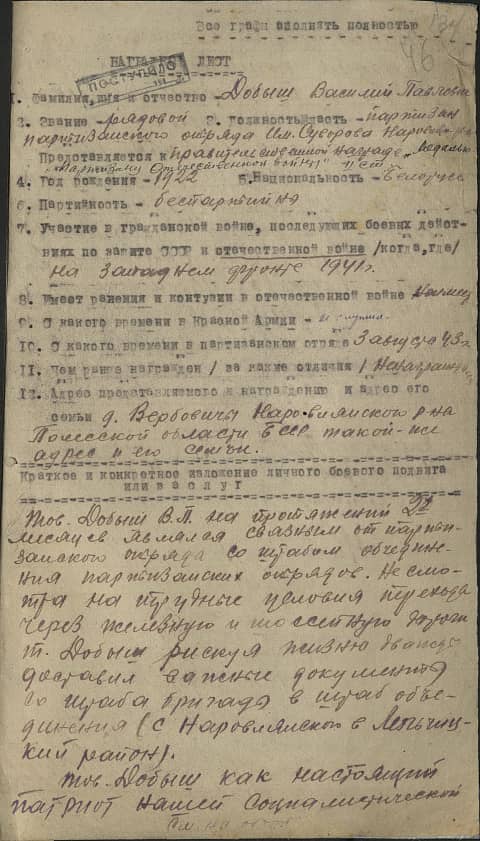 Все графы заполнять полностью
46
НАГРАДНОЙ ЛИСТ
ПОСТУПИЛО
1. Фамилия, имя и отчество - Добыш Василий Павлович
2. Звание - рядовой 3. Должность, часть - партизан
партизанского отряда Им. Суворова
Представляется к правительственной награде медалью
"Партизану Отечественной войны" II ст.
4. Год рождения - 1922 5. Национальность - Белорус
6. Партийность - беспартийный
7. Участие в гражданской войне, последующих боевых дейст-
виях по защите СССР и отечественной войне /когда, где/
на западнем фронте 1941 г.
8. Имеет ранения и контузии в отечественной войне
9. С какого времени в Красной Армии -
10. С какого времени в партизанском отряде 3 августа 43 г.
11. Чем ранее награжден / за какие отличия /
12. Адрес представляемого к награждению и адрес его
семьи д. Вербовичы Наровлянского р-на
Полесской области БССР такой-же
адрес и его семьи.
Краткое и конкретное изложение личного боевого подвига
или заслуг
Тов. Добыш В.П. на протяжении 2х
месяцев являлся связным от парти-
занского отряда со штабом объедине-
ния партизанских отрядов. Несмо-
тря на трудные условия перехода
через железную и шоссейную дороги
т. Добыш рискуя жизню дважды
доставил важные документы
со штаба бригады в штаб объе-
динения (с Наровлянского в Лельчиц-
кий район).
Тов. Добыш как настоящий
патриот нашей Социалистической
См. на обор.